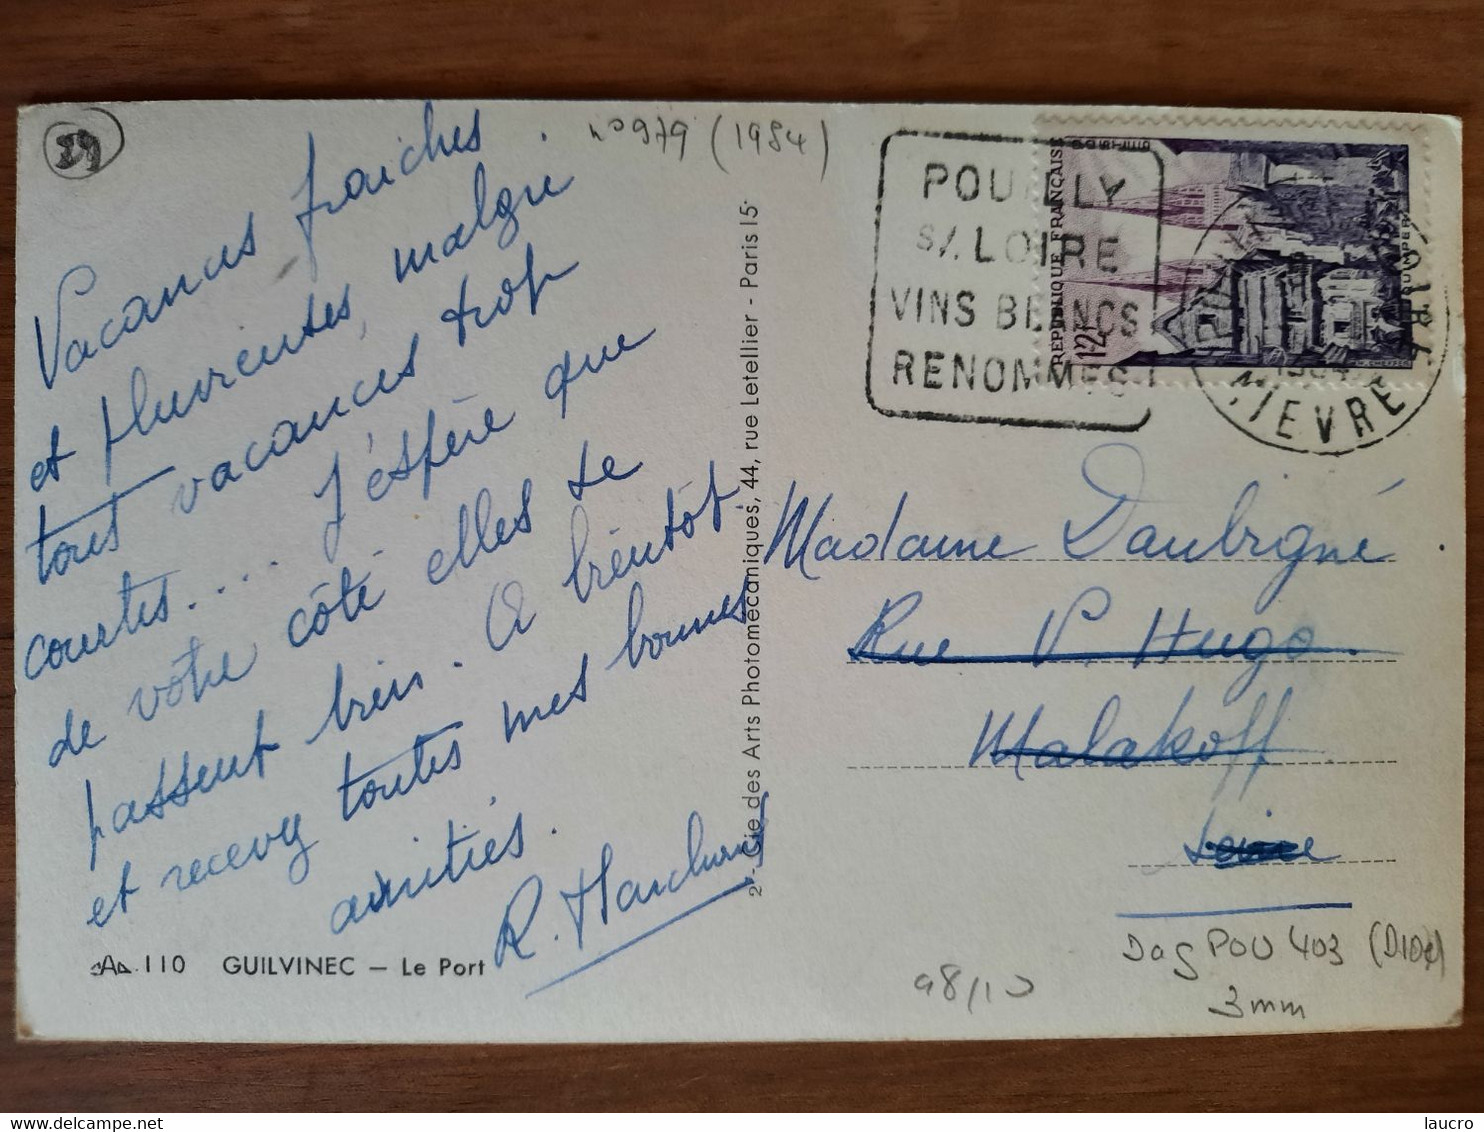 29
n° 979 (1954)
Vacances fraiches
et pluvieuses, malgré
tout vacances trop
courtes.... J'espère que
de votre côté elles se
passent bien. A bientôt
et recevez toutes mes bonnes
amitiés.
110 GUILVINEC – Le Port
Cie des Arts Photomécaniques, 44, rue Letellier - Paris 15
POUILLY
S/. LOIRE
VINS BLANCS
RENOMMES
REPUBLIQUE FRANÇAISE
12F
QUIMPER
NIEVRE
Madame Daubigné
Rue V. Hugo
Malakoff
Seine
98/10
Dag POU 403
3mm
laucro